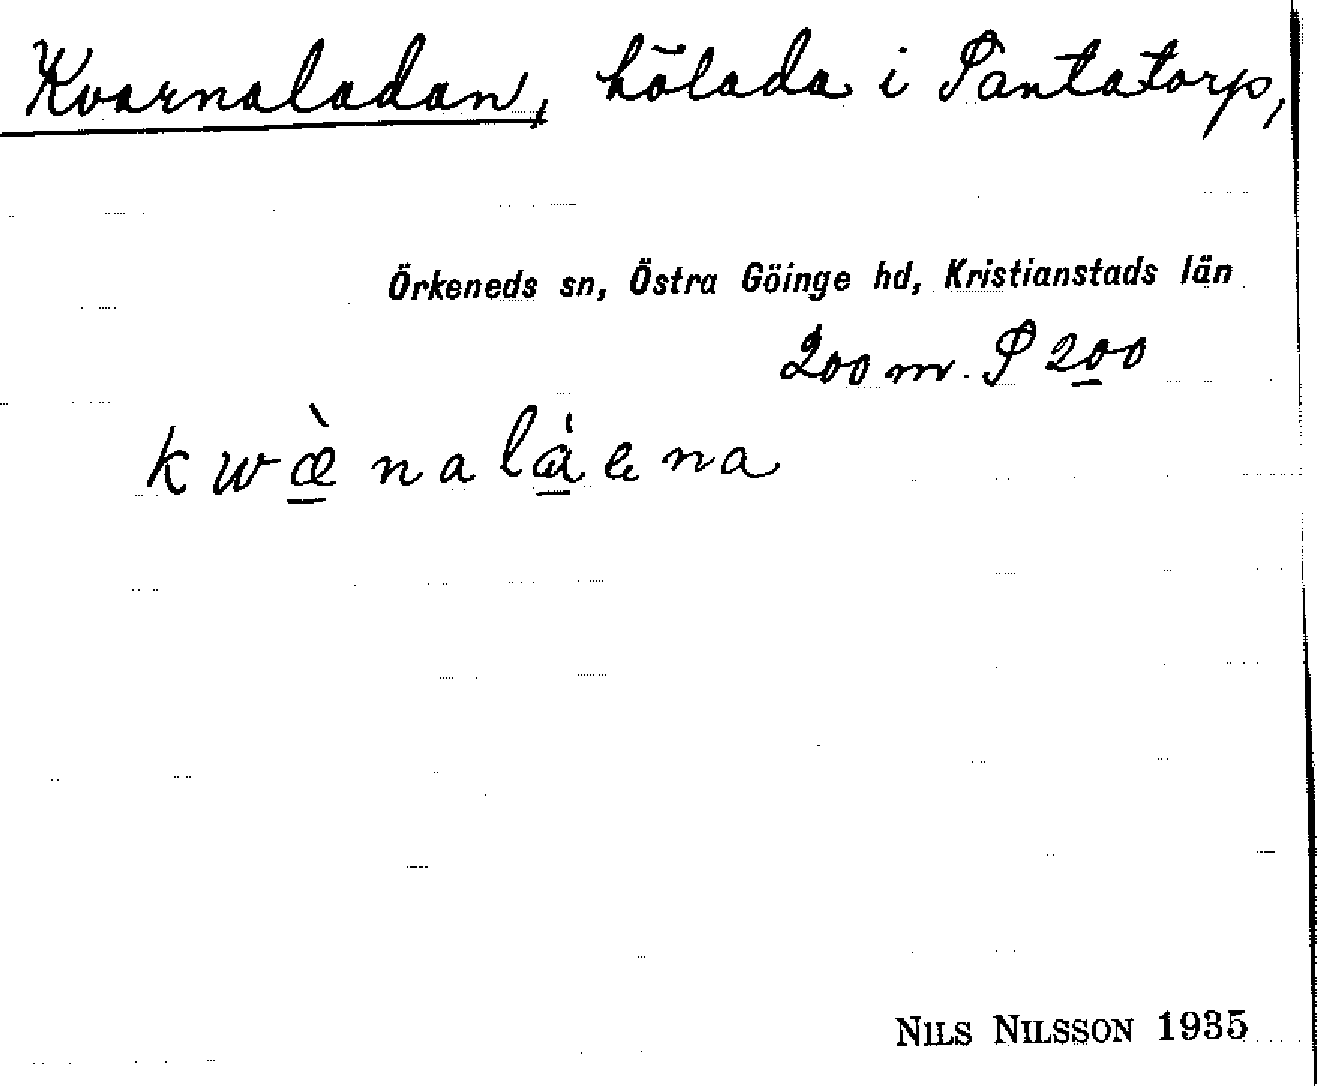 Kvarnaladan, hölada i Pantatorp,
Örkeneds sn, Östra Göinge hd, Kristianstads län
200 m. S 200
kwæ̀nalàena
NILS NILSSON 1935